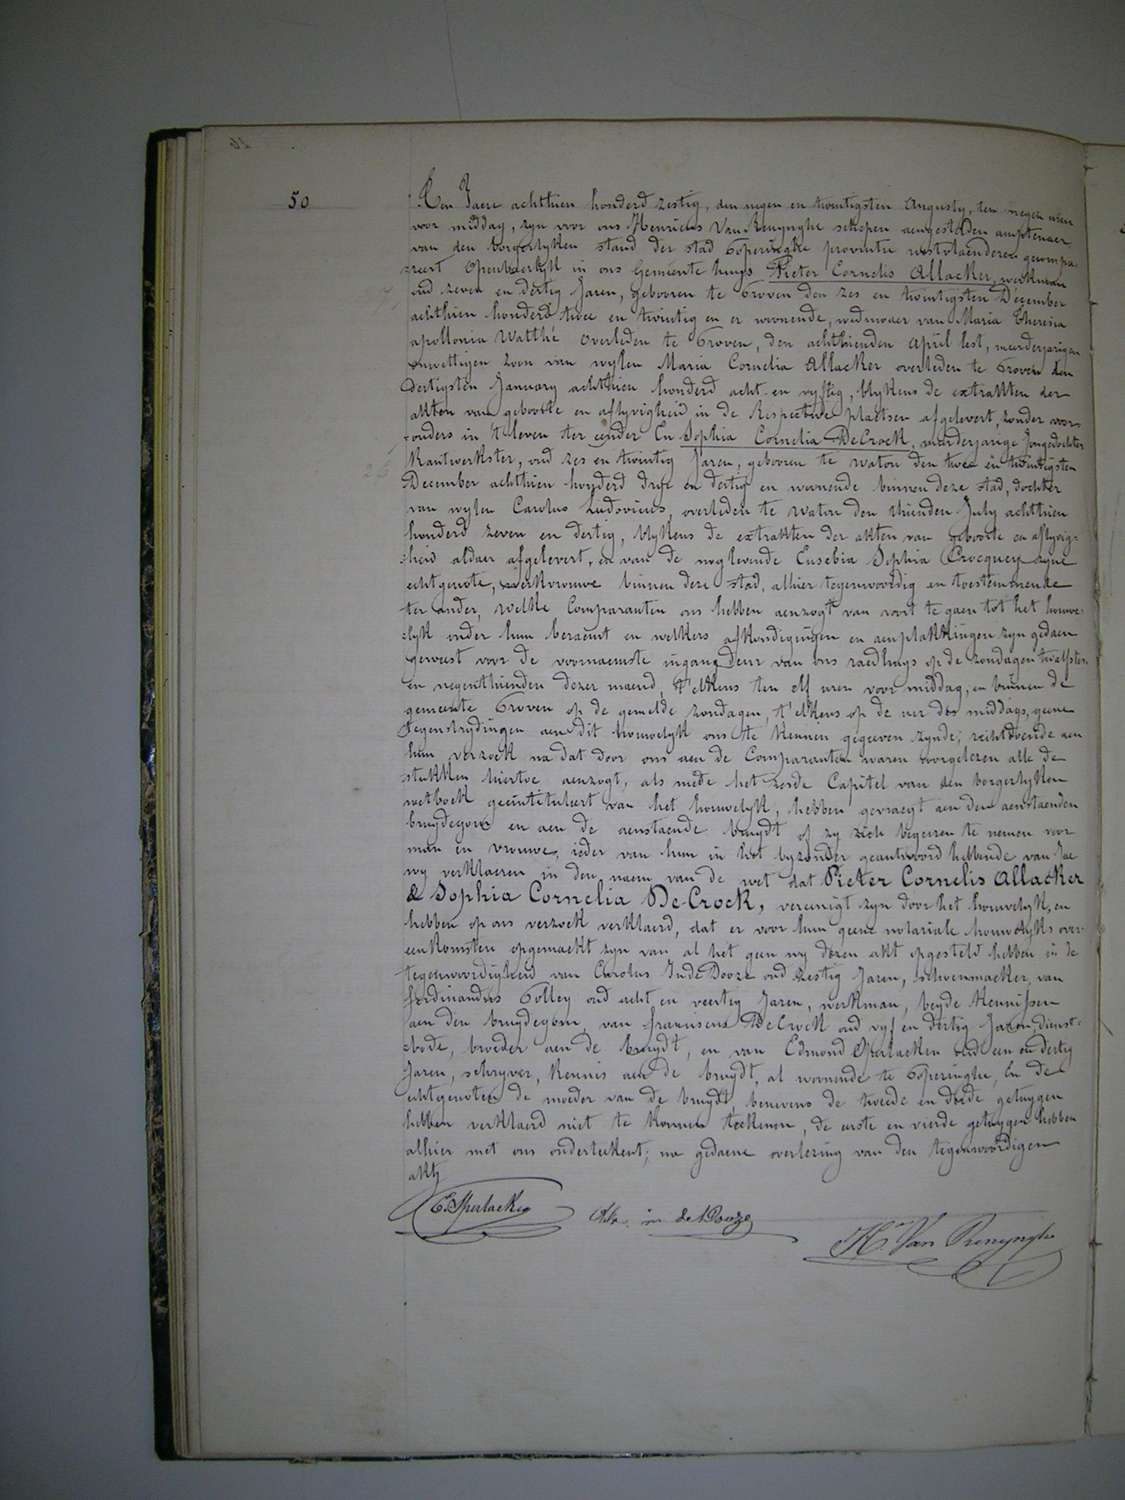 50
Ten Jaere achthien honderd zestig, den negen en twintigsten Augusty, ten negen uren
voor middag, zyn voor ons Henricus Van Renynghe schepen aengestelden amptenaer
van den borgerlyken stand der stad Poperinghe provintie westvlaenderen gecompa-
-reert openbaerlyk in ons Gemeente huys Pieter Cornelis Allacker, werkman
oud zeven en dertig Jaren, gebooren te Proven den zes en twintigsten December
achthien honderd twee en twintig en er woonende, weduwaer van Maria Theresia
apollonia Watthé overleden te Proven, den achthienden april lest, meerderjarigen
onwettigen zoon van wylen Maria Cornelia Allacker overleden te Proven den
dertigsten January achthien honderd acht en vyftig, blykens de extrakten der
akten van geboorte en aflyvigheid in de Respective plaetsen afgelevert, zonder voor-
-ouders in 't leven ter eender En Sophia Cornelia DeCrock, meerderjarige Jongedochter
Kantwerkster, oud zes en twintig Jaren, gebooren te watou den twee en twintigsten
December achthien honderd drye en dertig en woonende binnen deze stad, dochter
van wylen Carolus Ludovicus, overleden te watou den thienden July achthien
honderd zeven en dertig, blykens de extrakten der akten van geboorte en aflyvig-
-heid aldaer afgelevert, en van de noglevende Eusebia Sophia Crocquey zyne
echtgenote, werkvrouwe binnen deze stad, alhier tegenwoordig en toestemmende
ter ander, welke Comparanten ons hebben aenzogt van voort te gaen tot het houwe-
-lyk onder hun beraemt en welkers afkondigingen en aenplakkingen zyn gedaen
geweest voor de voornaemste ingang deur van ons raedhuys op de zondagen twelfsten
en negenthienden dezer maend, t'elkens ten elf uren voor middag, en binnen de
gemeente Proven op de gemelde zondagen, t'elkens op de uer des middags, geene
Tegenstrydingen aen dit houwelyk ons te kennen gegeven zynde; rechtdoende aen
hun verzoek na dat door ons aen de Comparanten waren voorgelezen alle de
stukken hiertoe aenzogt, als mede het zesde Capitel van den borgerlyken
wetboek geïntituleert van het houwelyk, hebben gevraegt aen den aenstaenden
bruydegom en aen de aenstaende bruydt of zy zich begeiren te nemen voor
man en vrouwe, ieder van hun in het byzonder geantwoord hebbende van Jae
wy verklaeren in den naem van de wet dat Pieter Cornelis Allacker
& Sophia Cornelia DeCrock, vereenigt zyn door het houwelyk, en
hebben op ons verzoek verklaerd, dat er voor hun geene notariale houwelyks over-
eenkomsten opgemaekt zyn van al het geen wy dezen akt opgesteld hebben in de
tegenwoordigheid van Carolus IndeDooze oud zestig Jaren, schoenmaeker, van
Ferdinandus Polley oud acht en veertig Jaren, werkman, beyde Kennissen
aen den bruydegom, van franciscus DeCrock oud vyf en dertig Jaren, dienst-
-bode, broeder aen de bruydt, en van Edmond Sperlaeken oud een en dertig
Jaren, schryver, kennis aen de bruydt, al woonende te Poperinghe, En de
echtgenoten de moeder van de bruydt, benevens de tweede en derde getuygen
hebben verklaerd niet te konnen teekenen, de eerste en vierde getuygen hebben
alhier met ons onderteekent; na gedaene overlezing van den tegenwoordigen
akt.
E Sperlaeken in de Dooze
H. Van Renynghe